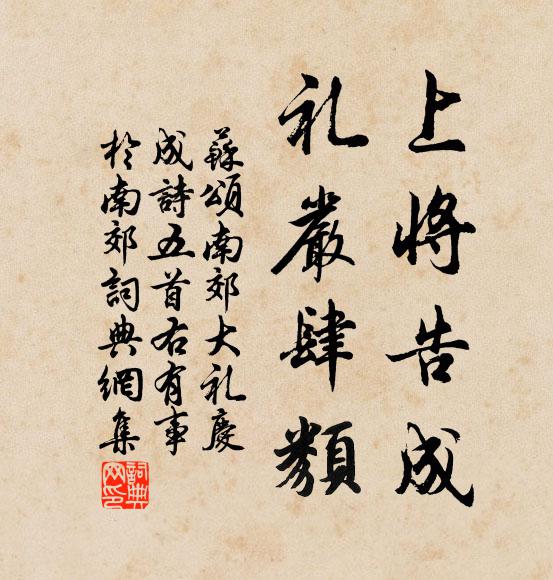 上将告成
礼嚴肆類
蘇頌南郊大礼慶
成詩五首右有事
於南郊詞典網集
詞典网印